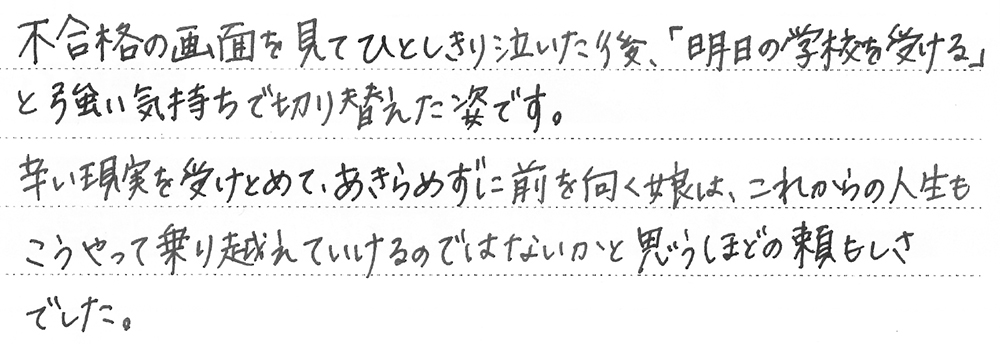 不合格の画面を見てひとしきり泣いた後、「明日の学校を受ける」
と強い気持ちで切り替えた姿です。
辛い現実を受けとめて、あきらめずに前を向く娘は、これからの人生も
こうやって乗り越えていけるのではないかと思うほどの頼もしさ
でした。